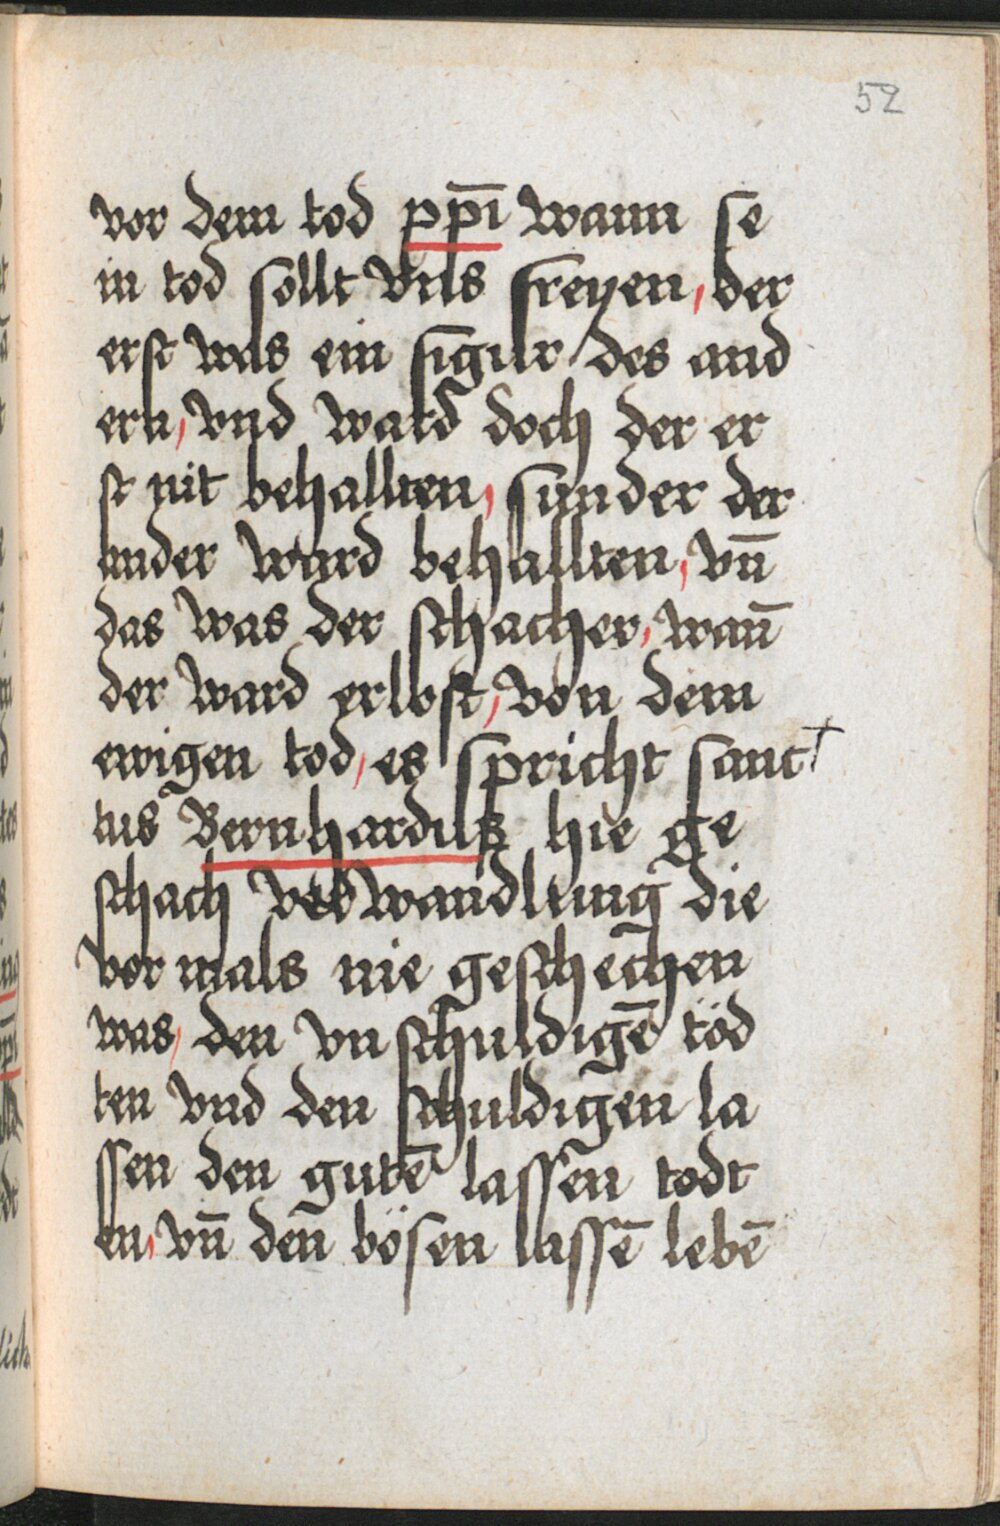 52
vor dem tod xp̄i wann se
in tod sollt vns freyen, der
erst was ein figur des and
ern, vnd ward doch der er
st nit behallten, sunder der
ander ward behallten, vn̄
das was der schacher, wan̄
der ward erlost, von dem
ewigen tod, es spricht sanc†
tus Bernhardus hie ge
schach verwandlung die
vor mals nie geschechen
was, den vnschuldigē töd
ten vnd den schuldigen la
ssen den gutē lassen todt
en, vn̄ den̄ bösen lassē lebē